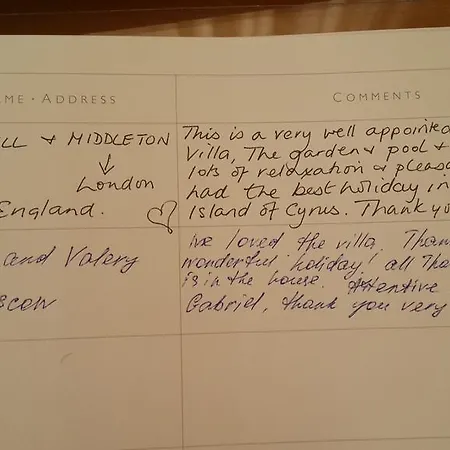 ME · ADDRESS
COMMENTS
LL & MIDDLETON
↓
London
England.
This is a very well appointed
Villa, The garden & pool &
lots of relaxation & pleas
had the best holiday in
Island of Cyrus. Thank yo
and Valery
scow
We loved the villa. Than
wonderful holiday! all Tha
is in the house. Attentive
Gabriel, thank you very